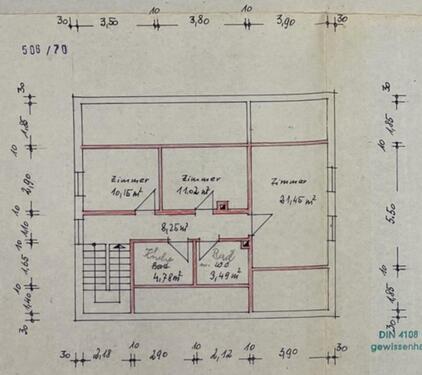 10 10
30 3,50 3,80 3,90 30
506/70
30 1.85 10 2,90 10 1.10 10 1.65 10 1,40 30
30 1.85 10 5.50 10 1.85 30
Zimmer
10,15 m²
Zimmer
11.02 m²
Zimmer
21,45 m²
8,25 m²
Küche
Bad
4.78 m²
Bad
WC
3,49 m²
DIN 4108
gewissenha
10 10 10
30 2,18 290 2,12 3,90 30